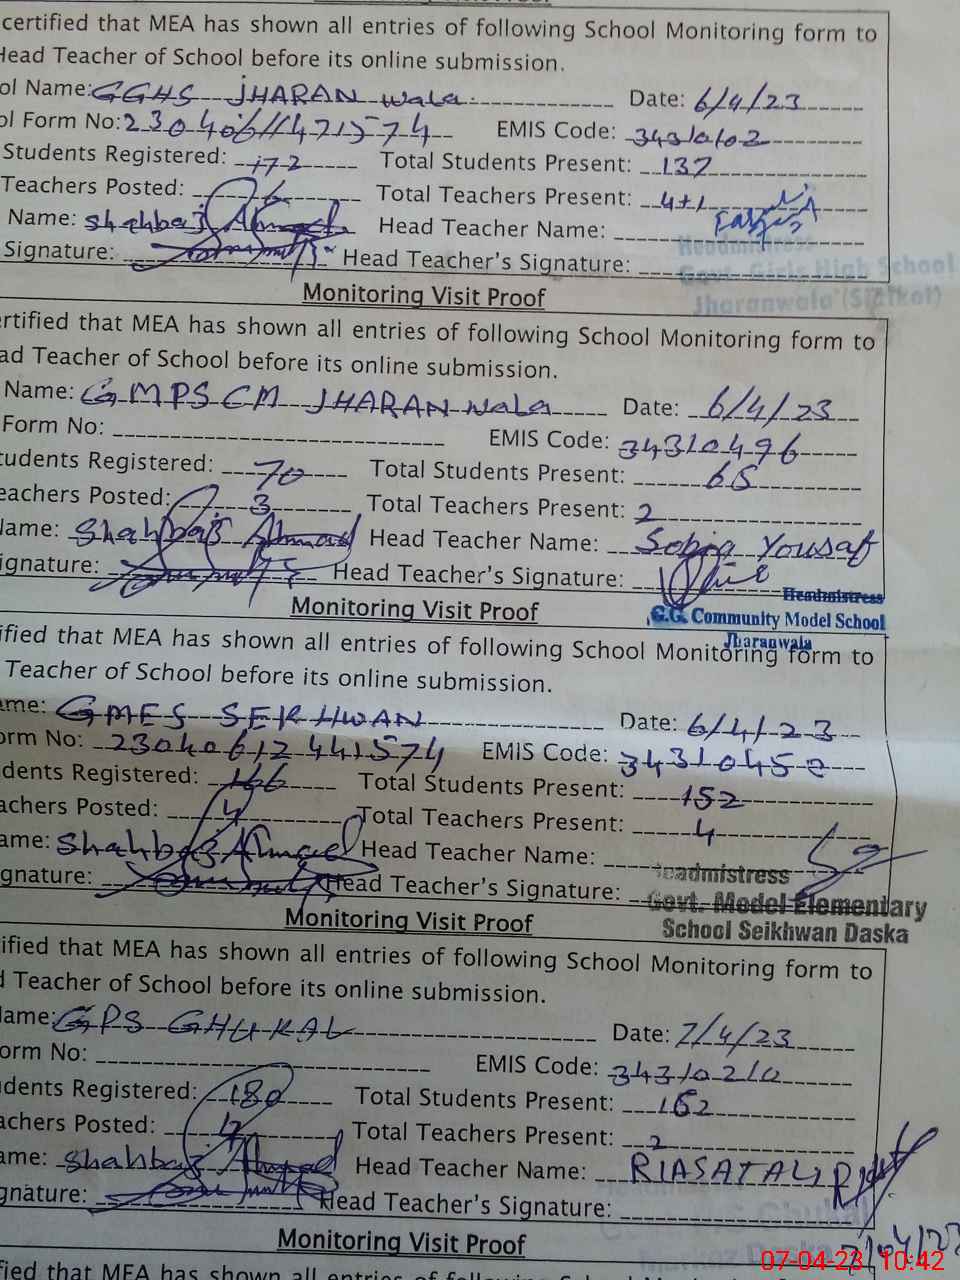 certified that MEA has shown all entries of following School Monitoring form to
Head Teacher of School before its online submission.
ol Name: GGHS JHARAN wala Date: 6/4/23
ol Form No: EMIS Code: 34310102
Students Registered: 172 Total Students Present: 137
Teachers Posted: 6 Total Teachers Present: 4+1
Name: shahbaz Ahmad Head Teacher Name:
Signature: Head Teacher's Signature:
Headmistress
Govt. Girls High School
Jharanwala (Sialkot)
Monitoring Visit Proof
ertified that MEA has shown all entries of following School Monitoring form to
ad Teacher of School before its online submission.
Name: GMPS CM JHARAN wala Date: 6/4/23
Form No: EMIS Code: 34310496
tudents Registered: 70 Total Students Present: 65
eachers Posted: 3 Total Teachers Present: 2
Name: Shahbaz Ahmad Head Teacher Name: Sobia Yousaf
ignature: Head Teacher's Signature:
Headmistress
G.G. Community Model School
Jharanwala
Monitoring Visit Proof
ified that MEA has shown all entries of following School Monitoring form to
Teacher of School before its online submission.
ame: GMES SEKHWAN Date: 6/4/23
orm No: 23040612441574 EMIS Code: 34310450
dents Registered: 166 Total Students Present: 152
achers Posted: 4 Total Teachers Present: 4
ame: Shahbaz Ahmad Head Teacher Name:
gnature: Head Teacher's Signature:
Headmistress
Govt. Model Elementary
School Seikhwan Daska
Monitoring Visit Proof
tified that MEA has shown all entries of following School Monitoring form to
d Teacher of School before its online submission.
Name: GPS GHUKAL Date: 7/4/23
orm No: EMIS Code: 34310210
udents Registered: 180 Total Students Present: 162
achers Posted: 4 Total Teachers Present: 2
ame: Shahbaz Ahmad Head Teacher Name: RIASAT ALI
gnature: Head Teacher's Signature:
Ghukal
Markaz Daska
7/04/23
Monitoring Visit Proof
07-04-23 10:42
fied that MEA has shown all entries of following School Monitoring form to